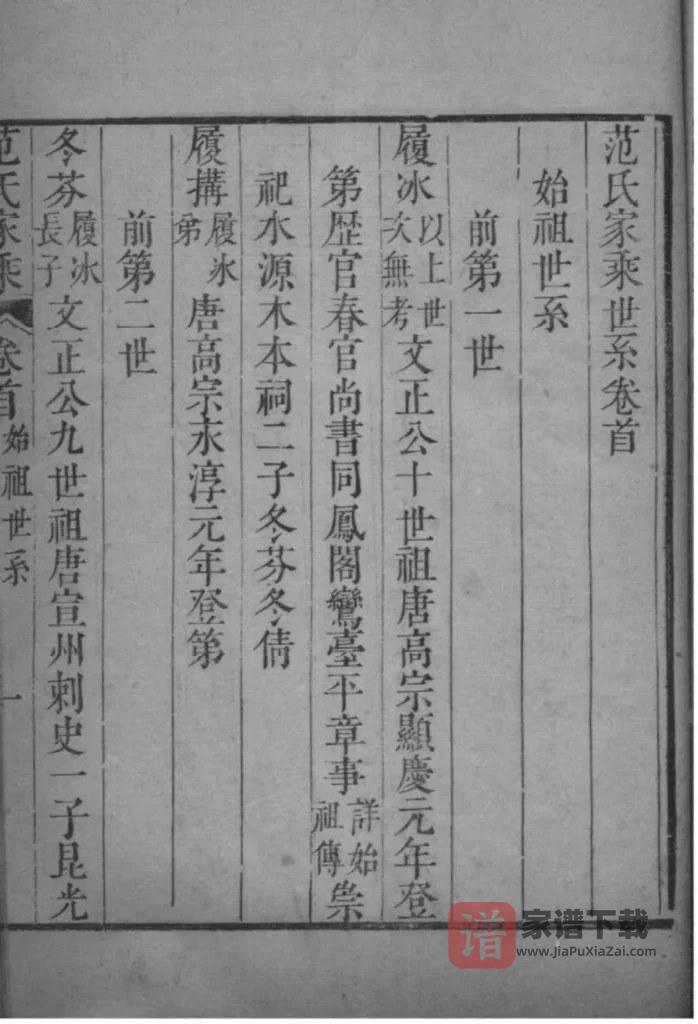 范氏家乘世系卷首
始祖世系
前第一世
履冰以上世次無考文正公十世祖唐高宗顯慶元年登
第歴官春官尚書同鳳閣鸞臺平章事詳始祖傳崇
祀水源木本祠二子冬芬冬倩
履搆履冰弟唐高宗永淳元年登第
前第二世
冬芬履冰長子文正公九世祖唐宣州刺史一子昆光
范氏家乘 卷首 始祖世系 一
谱 家谱下载
www.JiaPuXiaZai.com